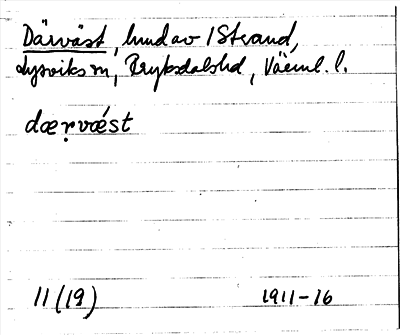 Därväst, hmd av 1 Strand,
Lysviks sn, Fryksdals hd, Värml. l.
dæṛvǽst
11 (19) 1911-16